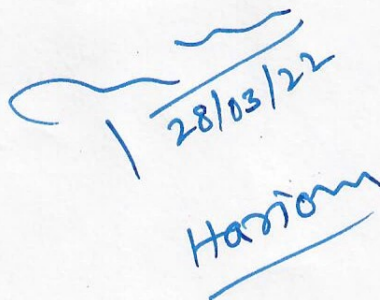 28/03/22
Hariom